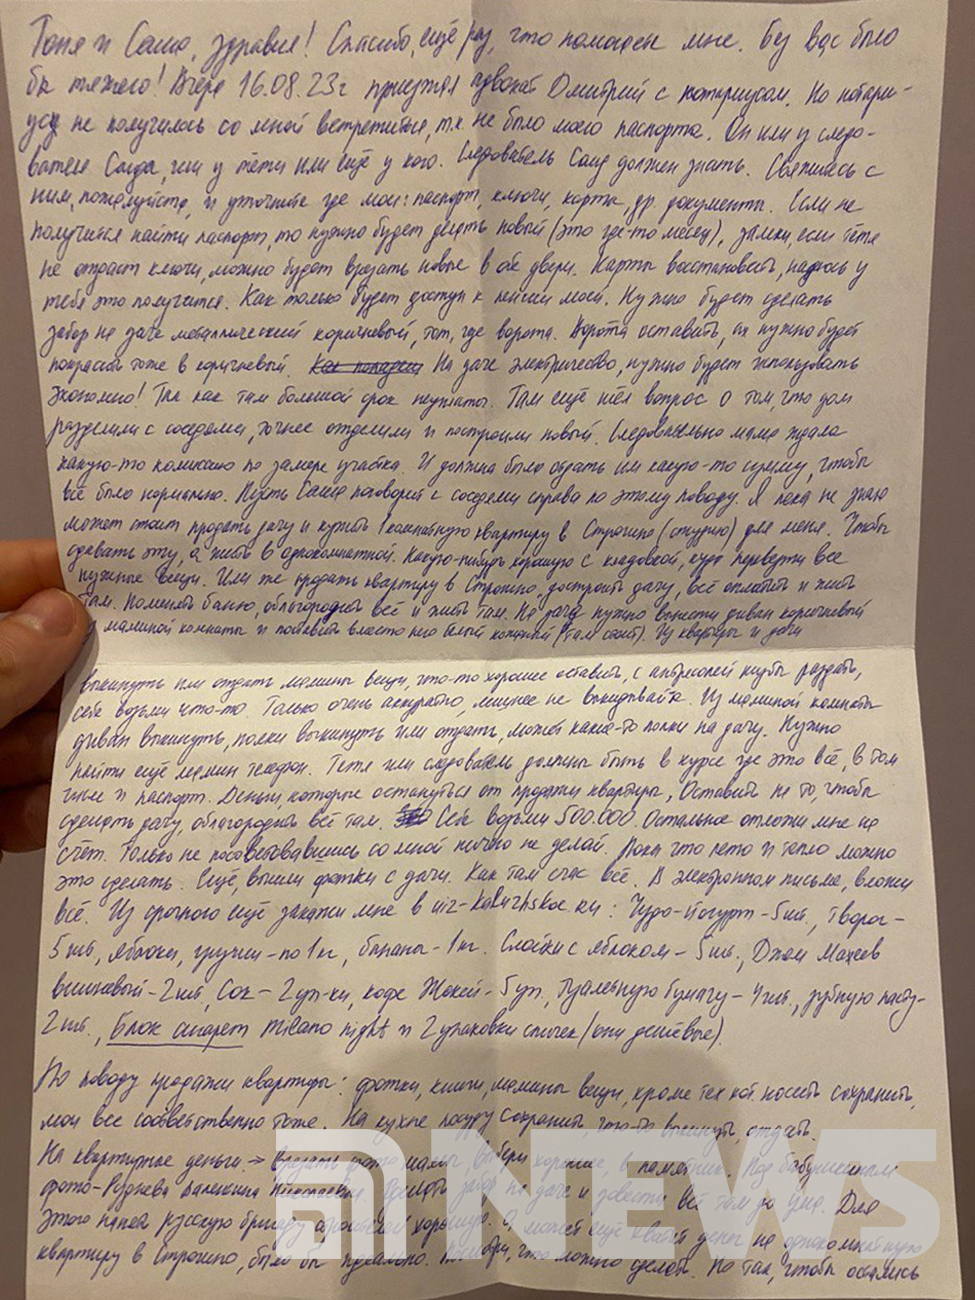 Тоня и Саша, здравия! Спасибо, ещё раз, что помогаете мне. Без вас было
бы тяжело! Вчера 16.08.23г приезжал адвокат Дмитрий с нотариусом. Но нотари-
усу не получилось со мной встретиться, т.к. не было моего паспорта. Он или у следо-
вателя Саида, или у тёти или ещё у кого. Следователь Саид должен знать. Свяжитесь с
ним, пожалуйста, и уточните где мои: паспорт, ключи, карты, др. документы. Если не
получится найти паспорт, то нужно будет делать новый (это где-то месяц), замки, если тётя
не отдаст ключи, можно будет врезать новые в обе двери. Карты восстановить, надеюсь у
тебя это получится. Как только будет доступ к пенсии моей. Нужно будет сделать
забор на даче металлический коричневый, тот, где ворота. Ворота оставить, их нужно будет
покрасить тоже в коричневый. На даче электричество, нужно будет использовать
экономно! Так как там большой срок неуплаты. Там ещё шёл вопрос о том, что дом
разделили с соседями, точнее отделили и построили новый. Следовательно мама ждала
какую-то комиссию по замере участка. И должна была отдать им какую-то сумму, чтобы
всё было нормально. Пусть Саша поговорит с соседями справа по этому поводу. Я пока не знаю
может стоит продать дачу и купить 1 комнатную квартиру в Строгино (студию) для меня. Чтобы
сдавать эту, а жить в однокомнатной. Какую-нибудь хорошую с кладовкой, куда перевезти все
нужные вещи. Или же продать квартиру в Строгино, достроить дачу, всё оплатить и жить
там. Поменять баню, облагородить всё и жить там. На даче нужно вынести диван коричневый
из маминой комнаты и поставить вместо него белый кожаный (там стоит). Из квартиры и дачи
выкинуть или отдать мамины вещи, что-то хорошее оставить, с антресолей клубы раздать,
себе возьми что-то. Только очень аккуратно, лишнее не выкидывайте. Из маминой комнаты
диван выкинуть, полки выкинуть или отдать, может какие-то полки на дачу. Нужно
найти ещё мамин телефон. Тётя или следователь должны быть в курсе где это всё, в том
числе и паспорт. Деньги, которые останутся от продажи квартиры, оставить на то, чтобы
сделать дачу, облагородить всё там. Себе возьми 500.000. Остальное отложи мне на
счёт. Только не посоветовавшись со мной ничего не делай. Пока что лето и тепло можно
это сделать. Ещё, вышли фотки с дачи. Как там счас всё. В электронном письме, вложи
всё. Из срочного ещё закажи мне в uiz-kaluzhskoe.ru: Чудо-йогурт-5шт., Творог-
5шт, яблоки, груши-по 1кг, бананы-1кг. Слойки с яблоком-5шт., Джем Махеев
вишнёвый-2шт, Сок-2уп-ки, кофе Жокей-5уп., туалетную бумагу-4шт., зубную пасту-
2шт., Блок сигарет milano night и 2 упаковки спичек (они дешёвые).
По поводу продажи квартиры: фотки, книги, мамины вещи, кроме тех кот. носить сохранить,
мои все соответственно тоже. На кухне посуду сохранить, что-то выкинуть, отдать.
На квартирные деньги → врезать фото мамы, выбери хорошее, в памятник. Под бабушкиным
фото-Руднева Валентина забор на даче и довести всё там до ума. Для
этого найти русскую бригаду хорошую. А может ещё хватит денег на однокомнатную
квартиру в Строгино, было бы идеально. Посмотри, что можно сделать. Но так, чтобы остались
NEWS